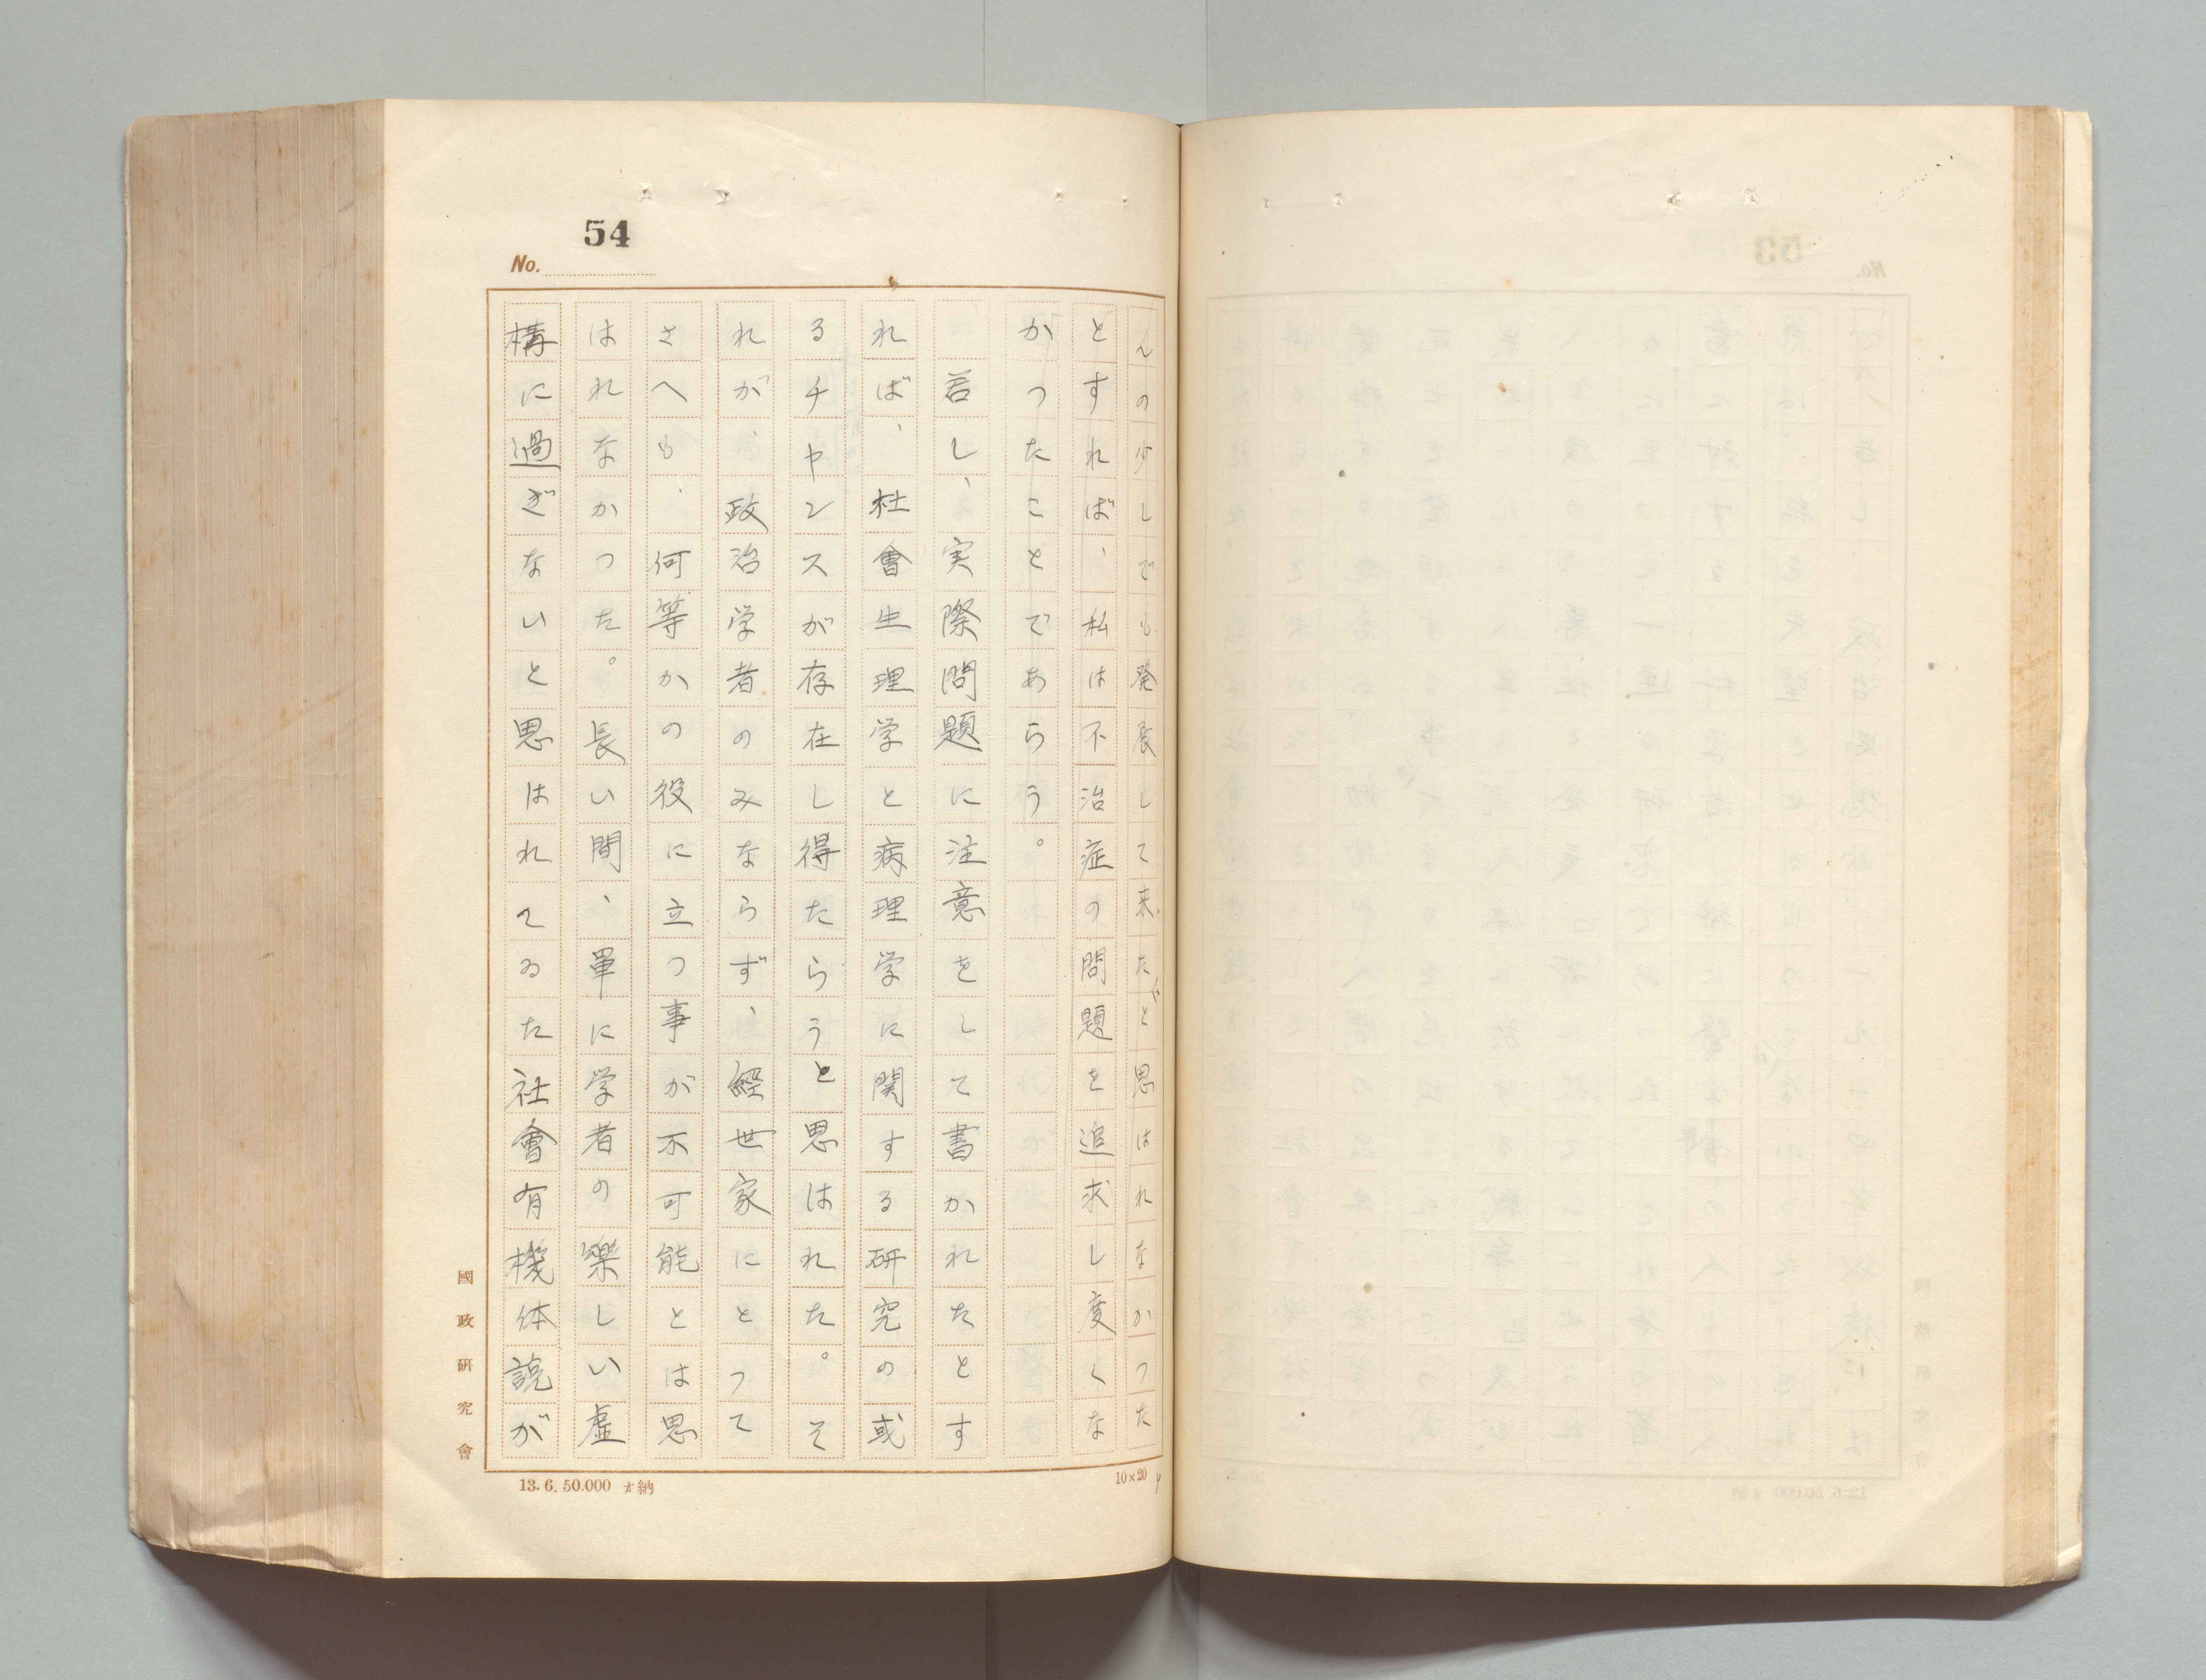 54
No.
んの少しでも発展して来たと思はれなかつた
とすれば、私は不治症の問題を追求し度くな
かつたことであらう。
若し、実際問題に注意をして書かれたとす
れば、社會生理学と病理学に関する研究の或
るチヤンスが存在し得たらうと思はれた。そ
れが、政治学者のみならず、経世家にとつて
さへも、何等かの役に立つ事が不可能とは思
はれなかつた。長い間、単に学者の樂しい虚
構に過ぎないと思はれてゐた社會有機体説が
國政研究會
13.6.50.000 納
10×20